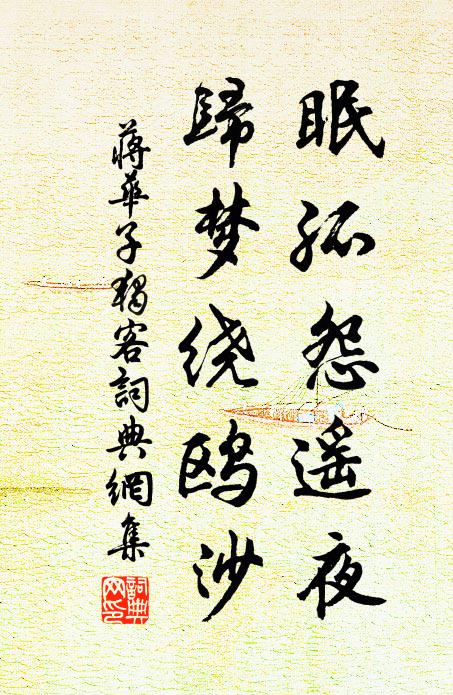 眠孤怨遥夜
歸梦绕鸥沙
蒋華子獨客詞典網集
詞典
网印